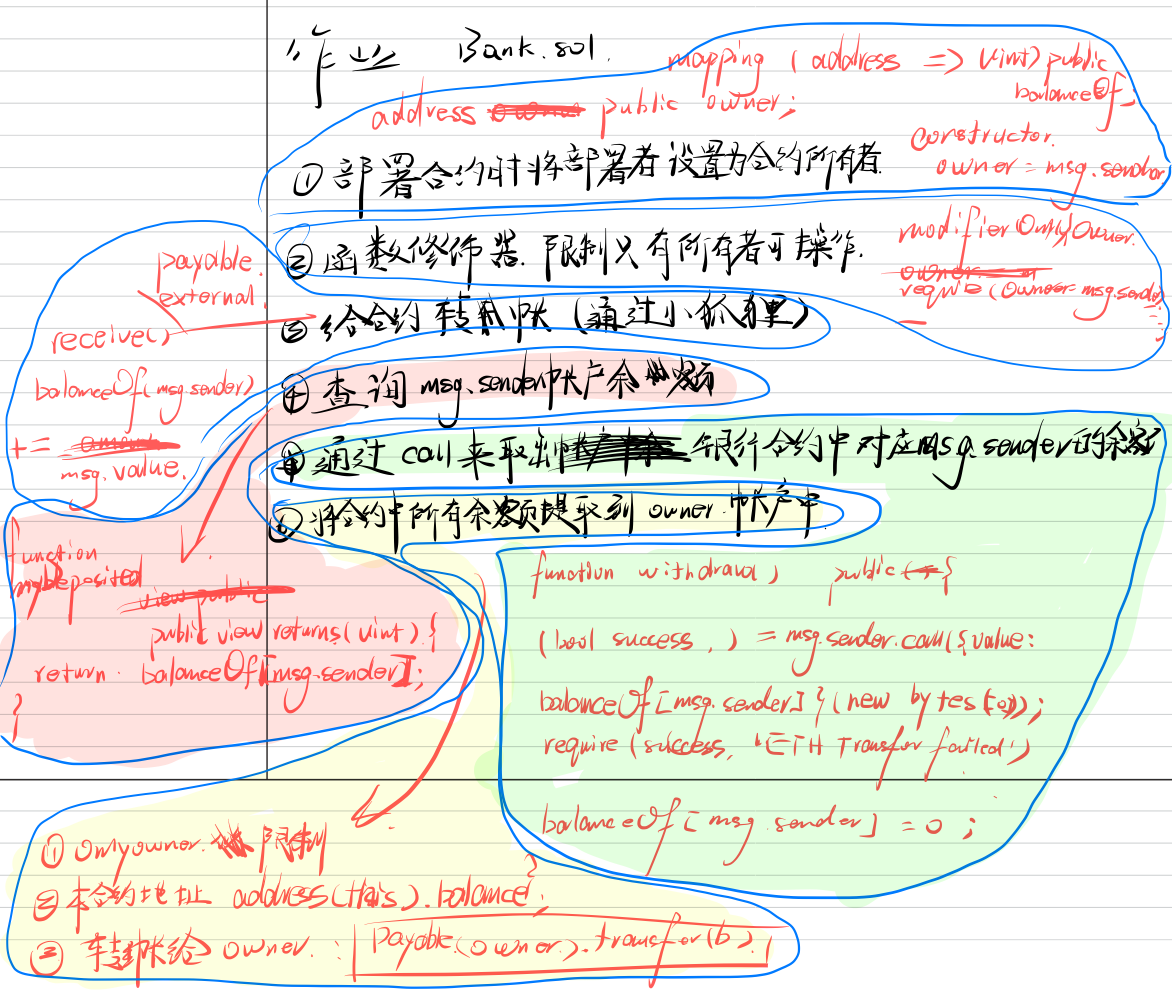 作业 Bank.sol.
mapping (address => uint) public
balanceOf;
address public owner;
constructor.
owner = msg.sender
① 部署合约时将部署者设置为合约所有者.
modifier OnlyOwner.
② 函数修饰器. 限制只有所有者可操作.
require(owner= msg.sender)
;
payable.
external.
③ 给合约转账 (通过小狐狸)
receive()
balanceOf(msg.sender)
+= msg.value.
④ 查询 msg.sender帐户余额
通过 call 来取出 银行合约中对应msg.sender的余额
将合约中所有余额提取到 owner 帐户中
function
mydeposited
public view returns(uint) {
return balanceOf[msg.sender];
}
function withdraw() public {
(bool success, ) = msg.sender.call({value:
balanceOf[msg.sender]}(new bytes(0));
require (success, 'ETH Transfer failed')
balanceOf[msg.sender] = 0 ;
}
① onlyowner. 限制
② 本合约地址 address(this).balance;
③ 转帐给 owner. : payable.(owner).transfer(b).